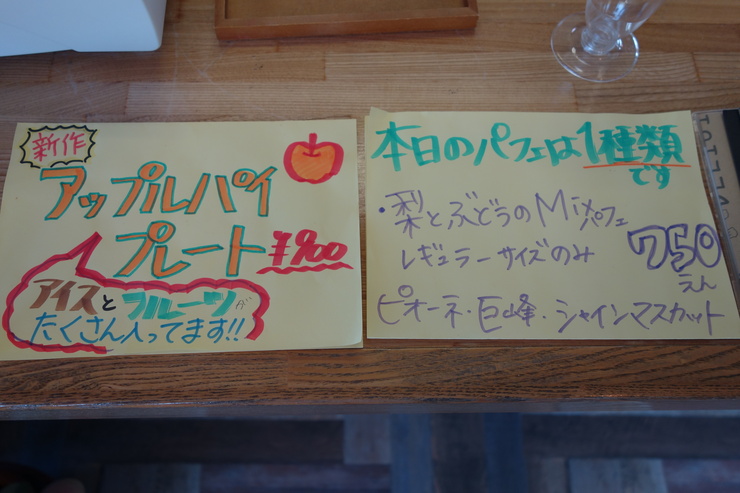 新作
アップルパイ
プレート ¥900
アイスとフルーツが
たくさん入ってます!!
本日のパフェは1種類
です
・梨とぶどうのMixパフェ
レギュラーサイズのみ 750
えん
ピオーネ・巨峰・シャインマスカット